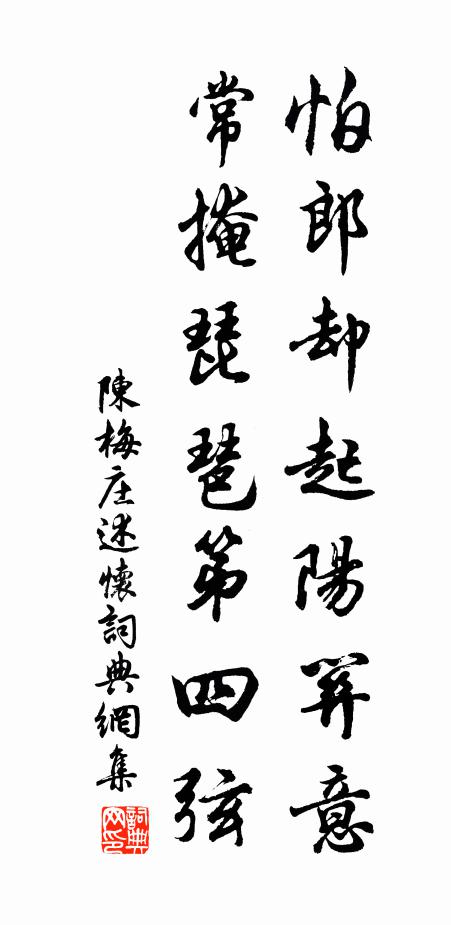 怕郎却起陽關意
常掩琵琶第四弦
陳梅庄述懷詞典網集
詞典
网印